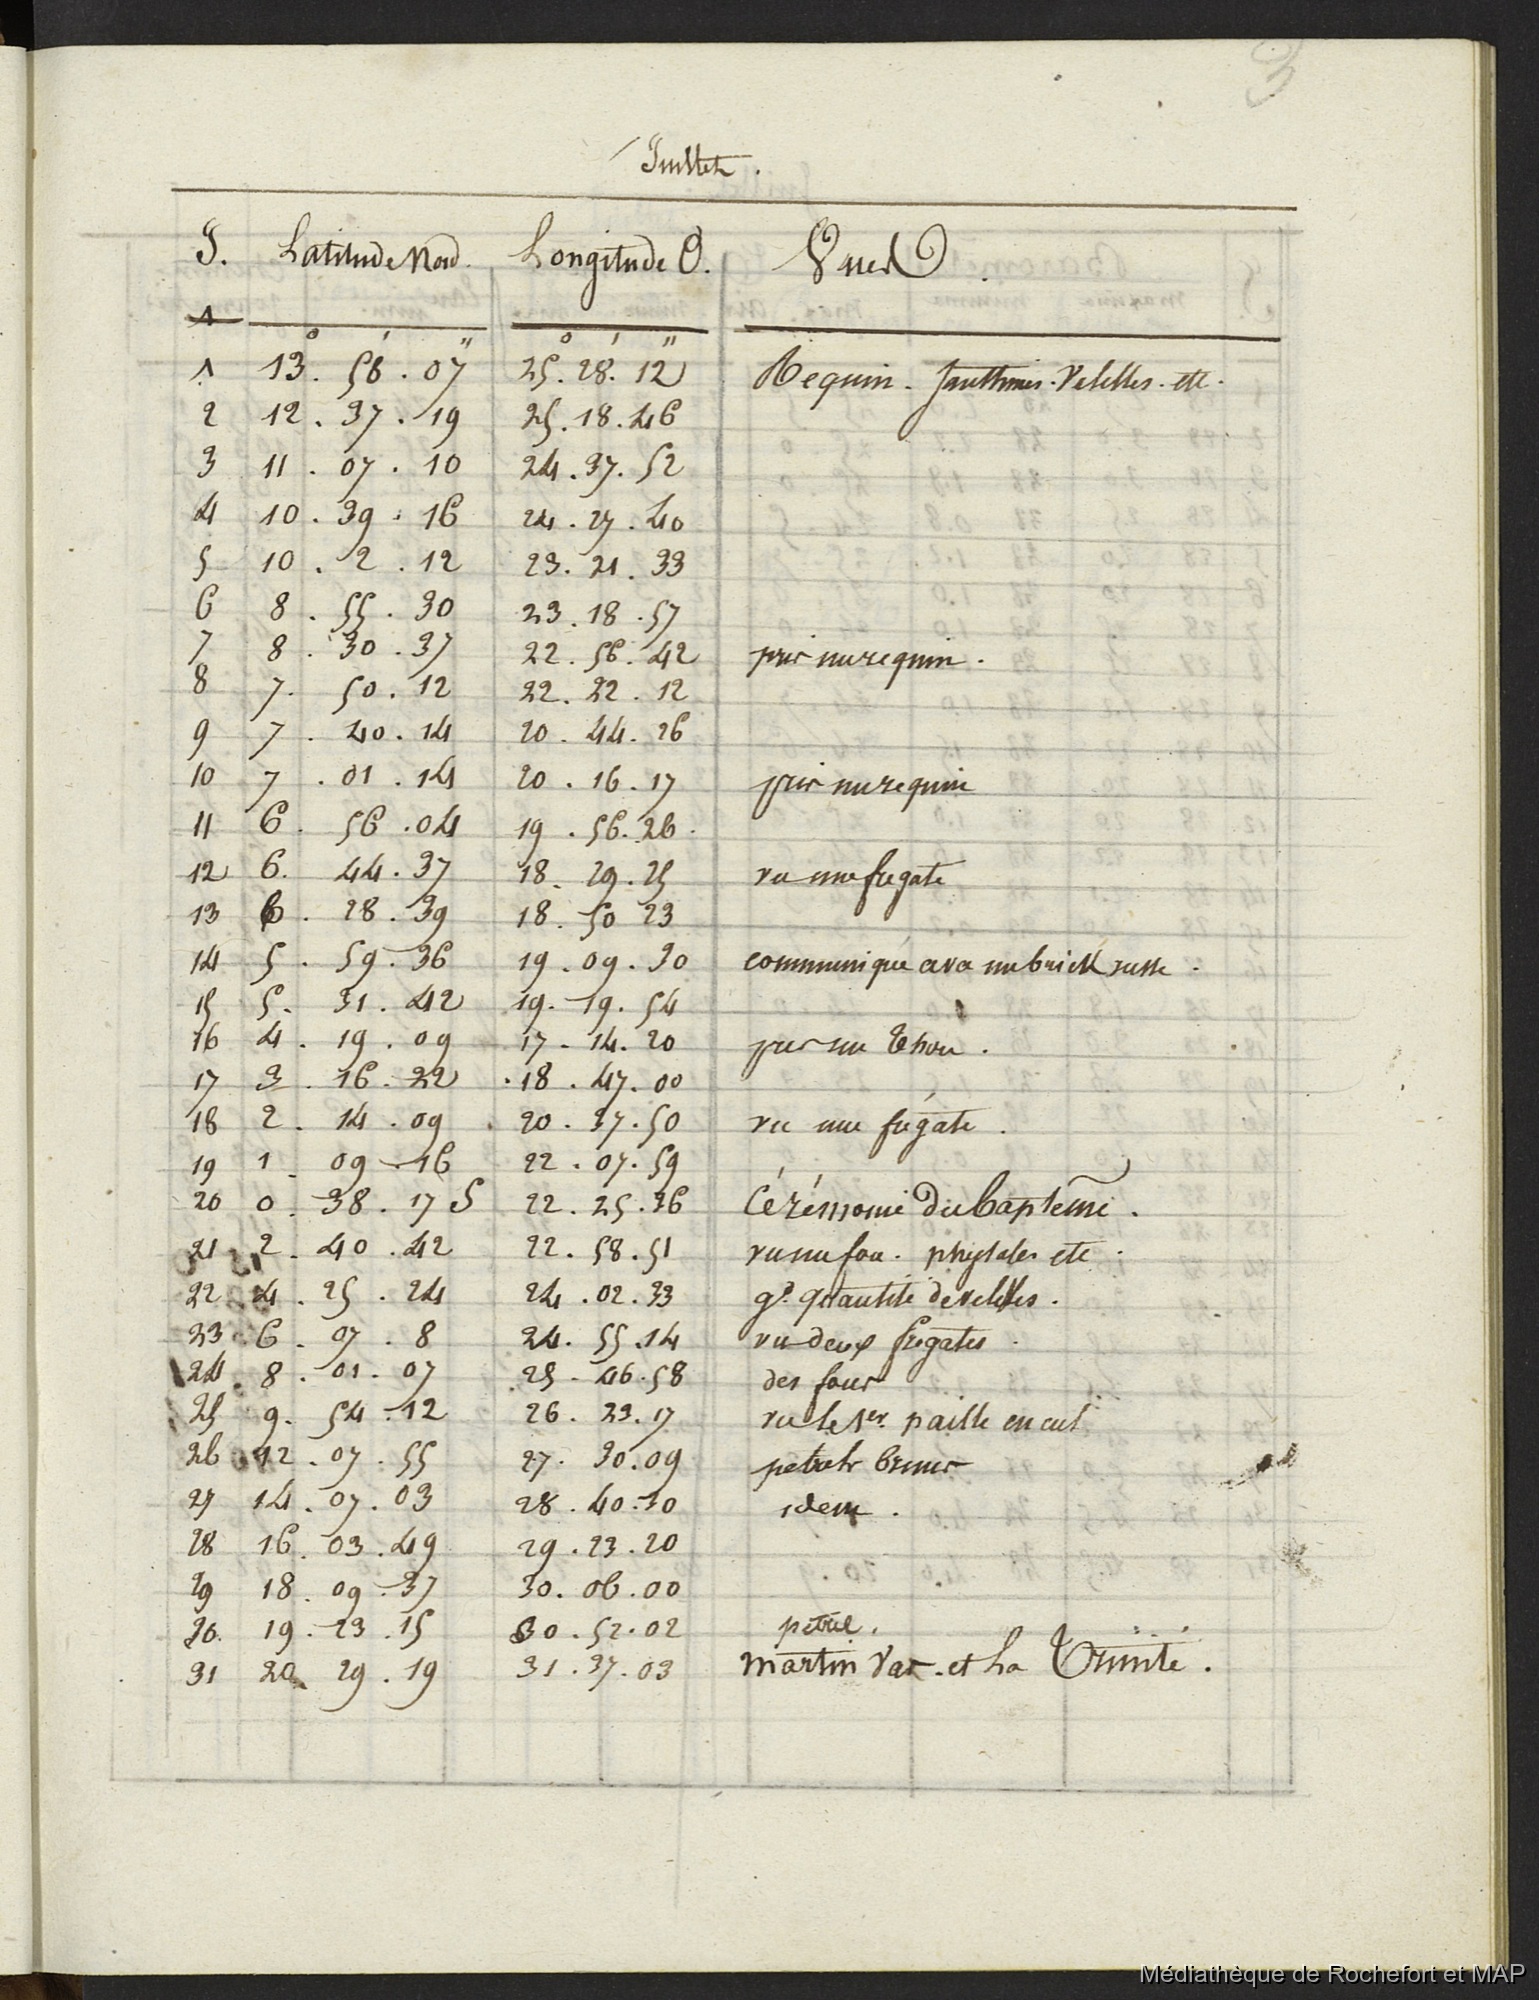 3
Juillet.
J. Latitude Nord. Longitude O. Vues
1
° ' " ° ' "
1 13. 56. 07 25. 28. 12 Requin. Janthines. Velelles. etc.
2 12. 37. 19 25. 18. 46
3 11. 07. 10 24. 37. 52
4 10. 39. 16 24. 27. 40
5 10. 2. 12 23. 21. 33
6 8. 55. 30 23. 18. 57
7 8. 30. 37 22. 56. 42 pris un requin.
8 7. 50. 12 22. 22. 12
9 7. 40. 14 20. 44. 26
10 7. 01. 14 20. 16. 17 pris un requin
11 6. 56. 04 19. 56. 26.
12 6. 44. 37 18. 29. 25 vu une fregate
13 6. 28. 39 18. 50 23
14 5. 59. 36 19. 09. 30 communiqué avec un brick russe.
15 5. 31. 42 19. 19. 54
16 4. 19. 09 17. 14. 20 pris un thon.
17 3. 16. 22 18. 47. 00
18 2. 14. 09 20. 37. 50 vu une frégate.
19 1. 09. 16 22. 07. 59
20 0. 38. 17 S 22. 25. 36 Cérémonie du Baptême.
21 2. 40. 42 22. 58. 51 vu un fou. physales etc.
22 4. 25. 24 24. 02. 33 gde quantité de velelles.
23 6. 07. 8 24. 55. 14 vu deux fregates.
24 8. 01. 07 25. 46. 58 des fous
25 9. 54. 12 26. 23. 17 vu le 1er. paille en cul
26 12. 07. 55 27. 30. 09 petrels bruns
27 14. 07. 03 28. 40. 30 idem.
28 16. 03. 49 29. 23. 20
29 18. 09. 37 30. 06. 00
30. 19. 23. 15 30. 52. 02 petrel.
31 20. 29. 19 31. 37. 03 Martin Vas. et La Trinité.
Médiathèque de Rochefort et MAP